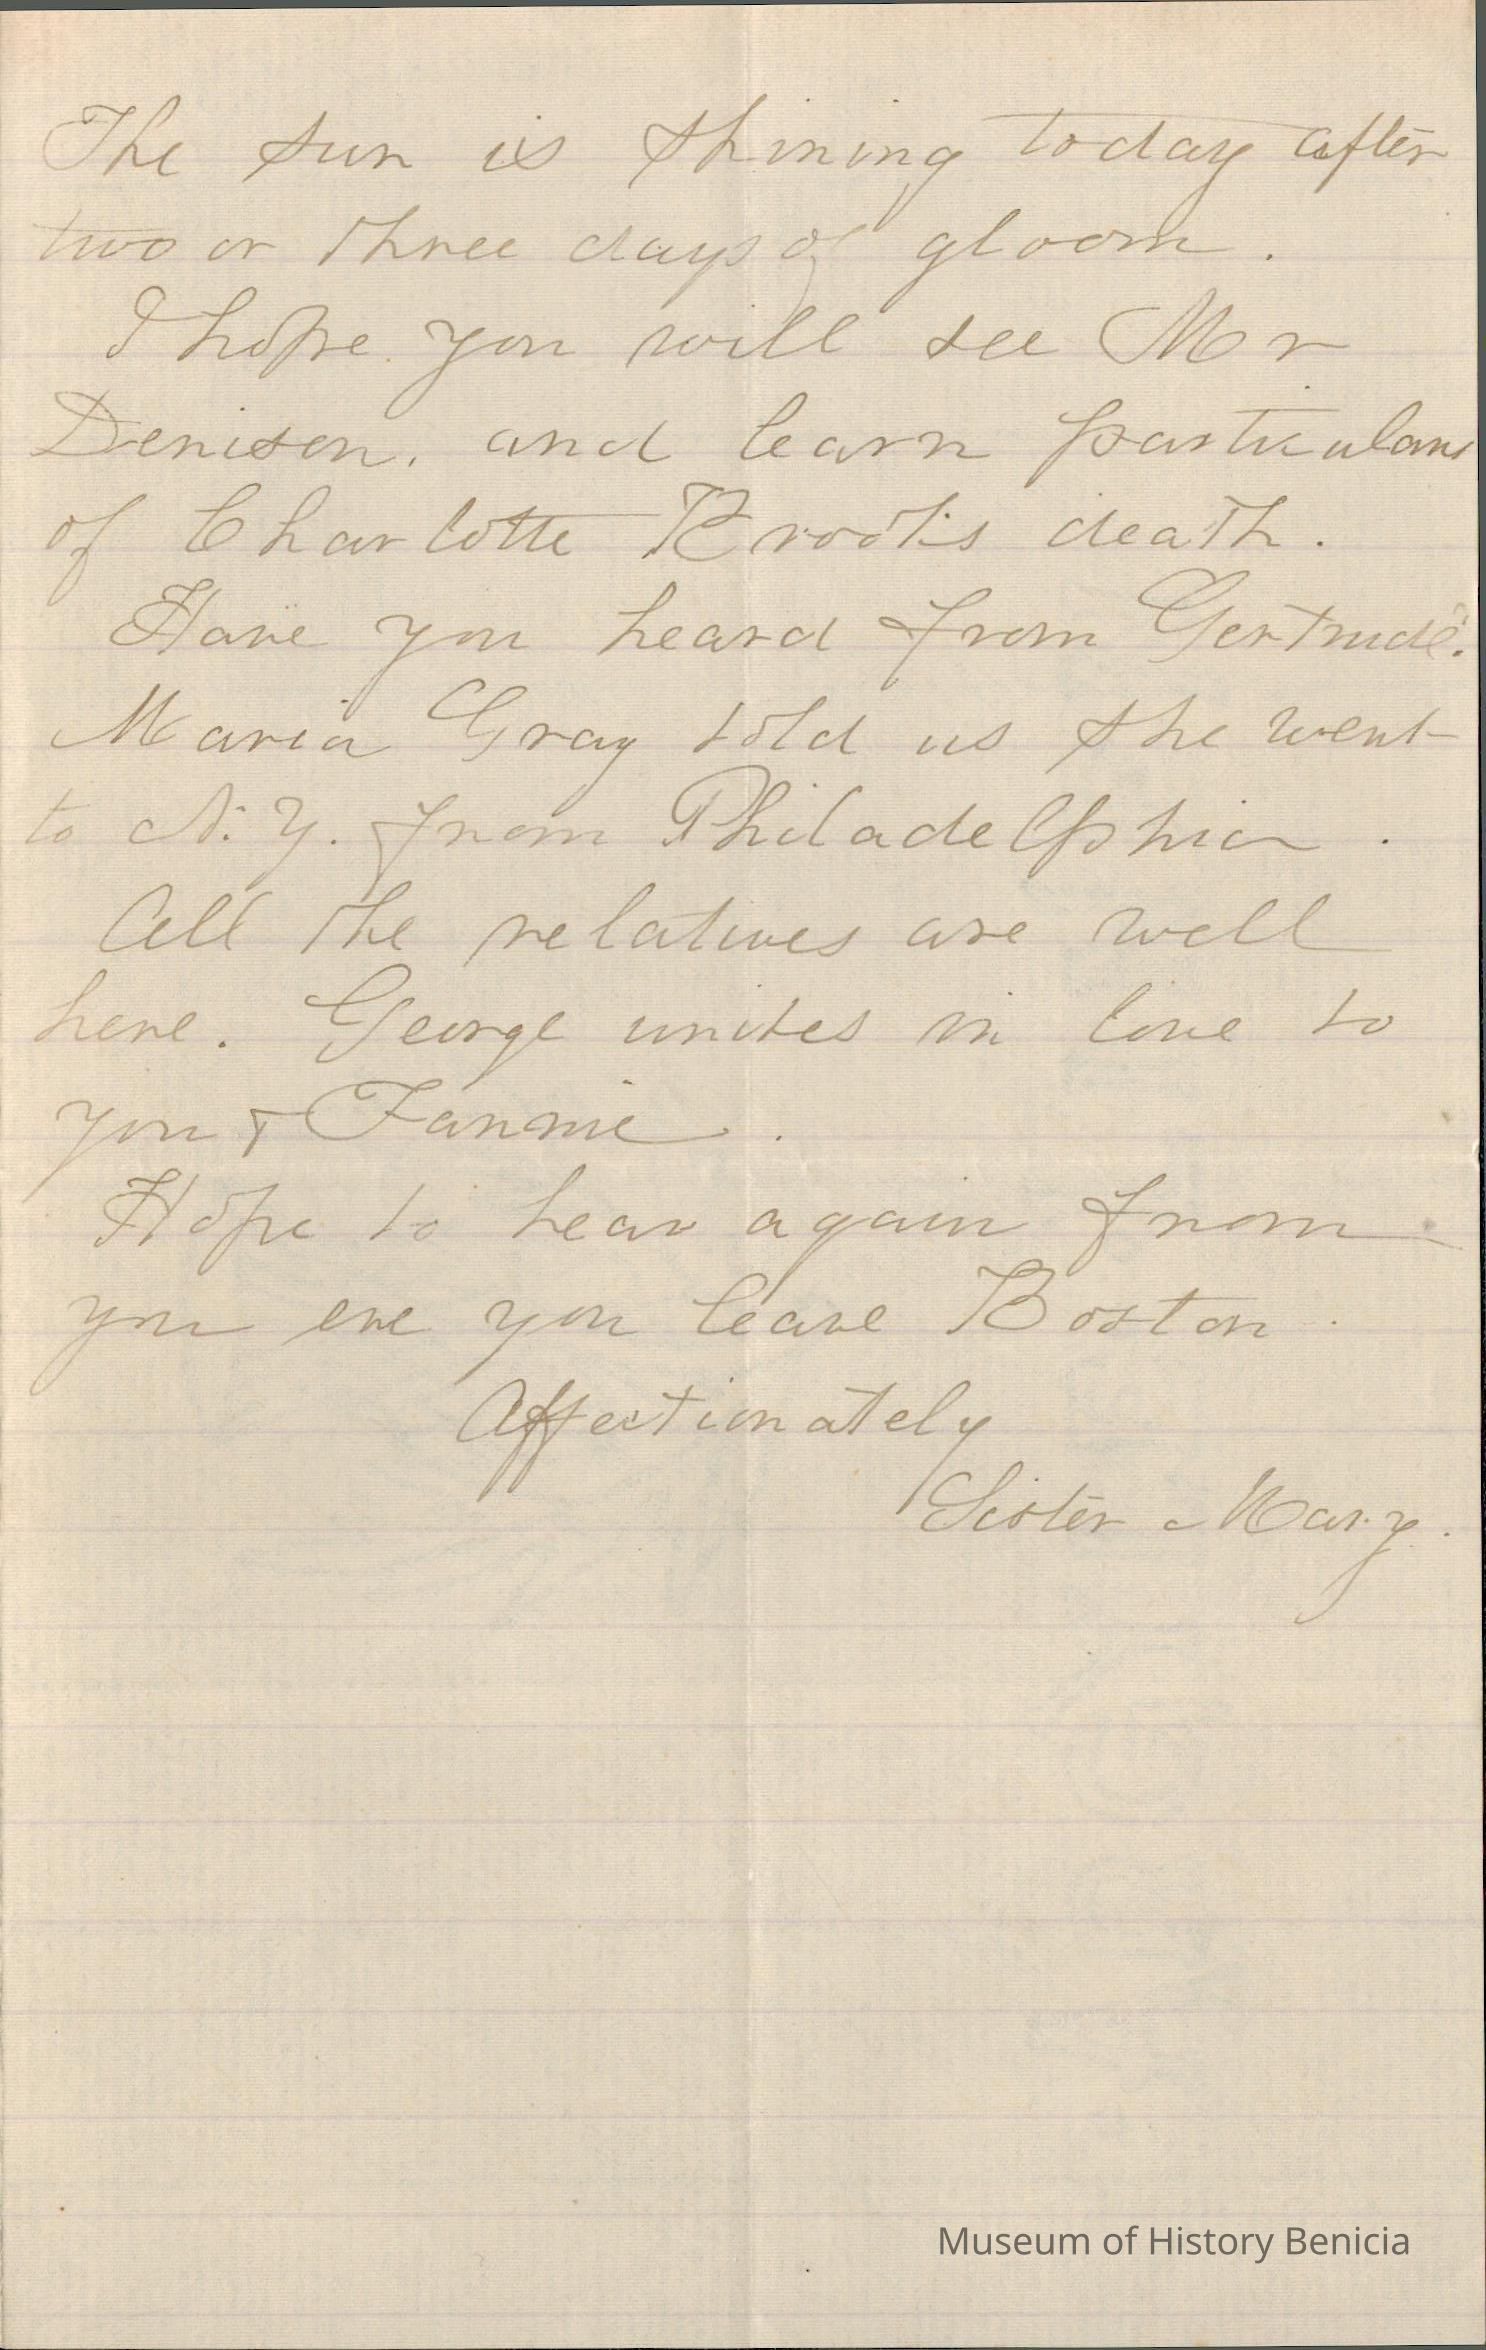 The sun is shining today after
two or three days of gloom.
I hope you will see Mr
Denison. and learn particulars
of Charlotte Broot's death.
Have you heard from Gertrude.
Maria Gray told us she went
to N.Y. from Philadelphia.
All the relatives are well
here. George unites in love to
you & Fannie.
Hope to hear again from
you ere you leave Boston.
Affectionately
Sister Mary.
Museum of History Benicia